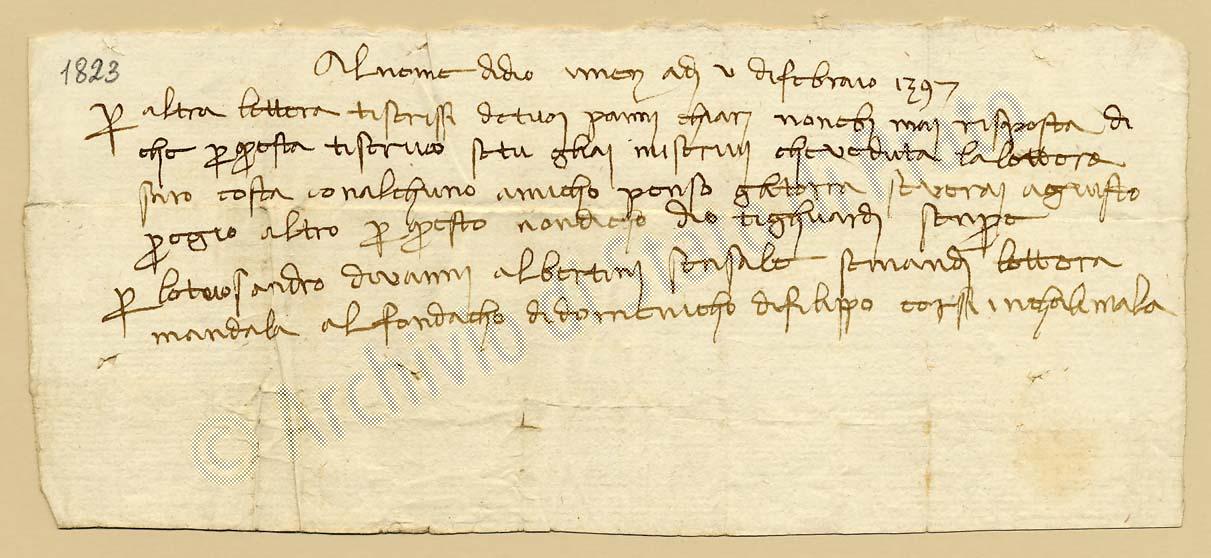 1823
Al nome didio adi v di febraio 1397
p altra lettera tiscrissi de tuoi panni chiari nonebi mai risposta di
che p questa tiscrivo se tu gliai miscrivi che veduta la lettera
saro costa conalchuno amicho penso gli torra severai aguisto
pegio altro p questo nondicho dio tighuardi senpre
p lotuo sandro divanni albertini sensale semandi lettera
mandala al fondacho didomenicho difilippo corssi inchalimala
© Archivio di Stato di Prato